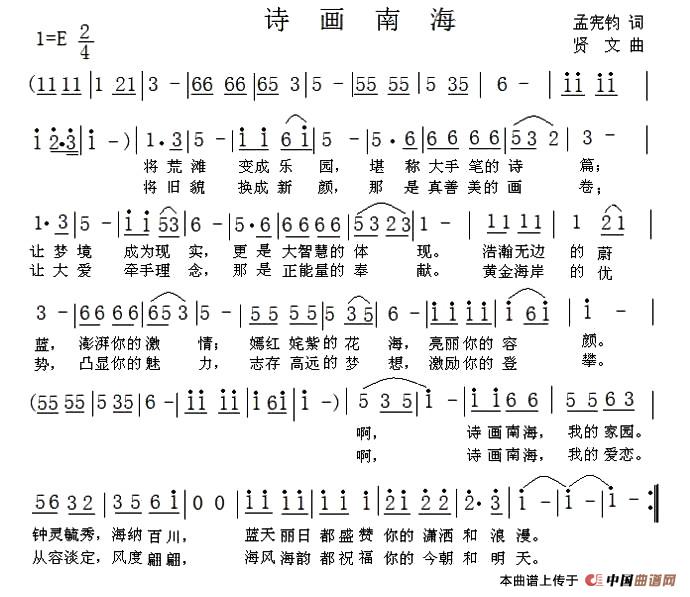 诗画南海
孟宪钧 词
1=E 2/4
贤文 曲
(11 11 | 1 21 | 3 - | 66 66 | 65 3 | 5 - | 55 55 | 5 35 | 6 - | i i i i |
i 2·3 | i - ) | 1·3 | 5 - | i i 6 i | 5·6 | 6 6 6 6 | 5 3 2 | 3 - |
将荒滩 变成乐园,堪称大手笔的诗篇;
将旧貌 换成新颜,那是真善美的画卷;
1·3 | 5 - | i i 53 | 6 - | 5·6 | 6666 | 5 3 2 3 | 1 - | 11 11 | 1 21 |
让梦境 成为现实,更是大智慧的体现。浩瀚无边的蔚
让大爱 牵手理念,那是正能量的奉献。黄金海岸的优
3 - | 66 66 | 6 5 3 | 5 - | 55 55 | 5 35 | 6 - | i i i i | i 6i | i - |
蓝,澎湃你的激情;嫣红姹紫的花海,亮丽你的容颜。
势,凸显你的魅力,志存高远的梦想,激励你的登攀。
(55 55 | 5 35 | 6 - | i i i i | i 6i | i - ) | 5 3 5 | i - | i i 6 6 | 5 5 6 3 |
啊,诗画南海,我的家园。
啊,诗画南海,我的爱恋。
56 32 | 3 5 6 i | 0 0 | i i i i | i i i i | 2 i 2 2 | 2·3 | i - | i - | i - :||
钟灵毓秀,海纳百川,蓝天丽日都盛赞你的潇洒和浪漫。
从容淡定,风度翩翩,海风海韵都祝福你的今朝和明天。
本曲谱上传于 中国曲谱网